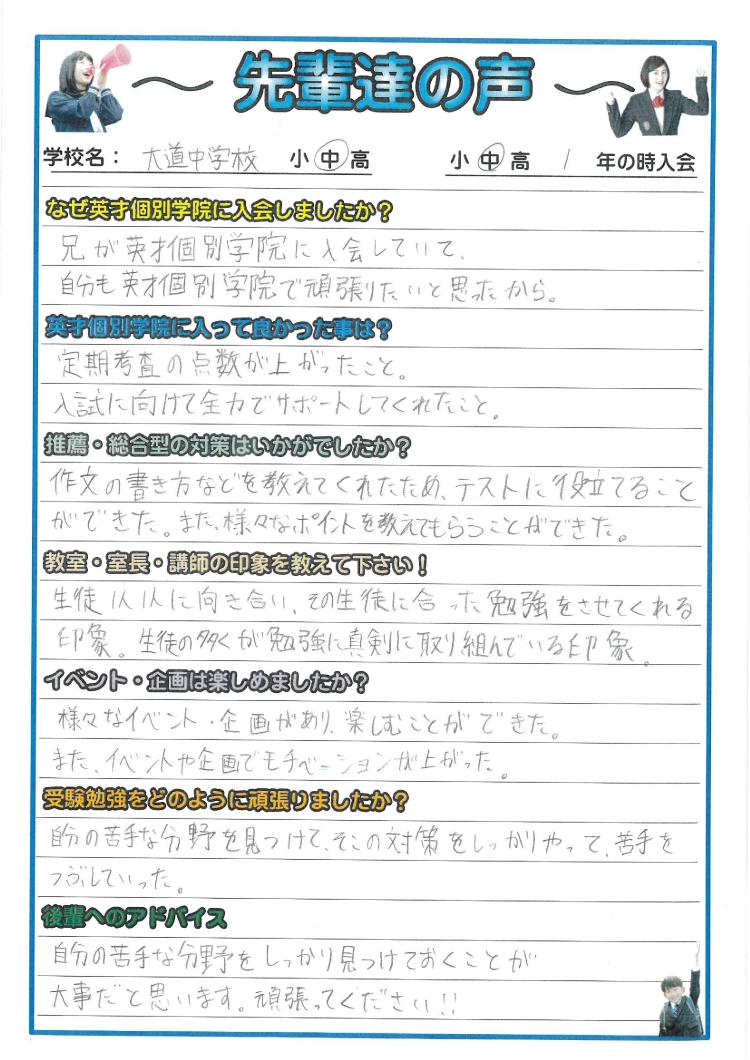 ～ 先輩達の声 ～
学校名： 大道中学校 小 中 高 小 中 高 1 年の時入会
なぜ英才個別学院に入会しましたか？
兄が英才個別学院に入会していて、
自分も英才個別学院で頑張りたいと思ったから。
英才個別学院に入って良かった事は？
定期考査の点数が上がったこと。
入試に向けて全力でサポートしてくれたこと。
推薦・総合型の対策はいかがでしたか？
作文の書き方などを教えてくれたため、テストに役立てること
ができた。また、様々なポイントを教えてもらうことができた。
教室・室長・講師の印象を教えて下さい！
生徒1人1人に向き合い、その生徒に合った勉強をさせてくれる
印象。生徒の多くが勉強に真剣に取り組んでいる印象。
イベント・企画は楽しめましたか？
様々なイベント・企画があり、楽しむことができた。
また、イベントや企画でモチベーションが上がった。
受験勉強をどのように頑張りましたか？
自分の苦手な分野を見つけて、そこの対策をしっかりやって、苦手を
つぶしていった。
後輩へのアドバイス
自分の苦手な分野をしっかり見つけておくことが
大事だと思います。頑張ってください!!